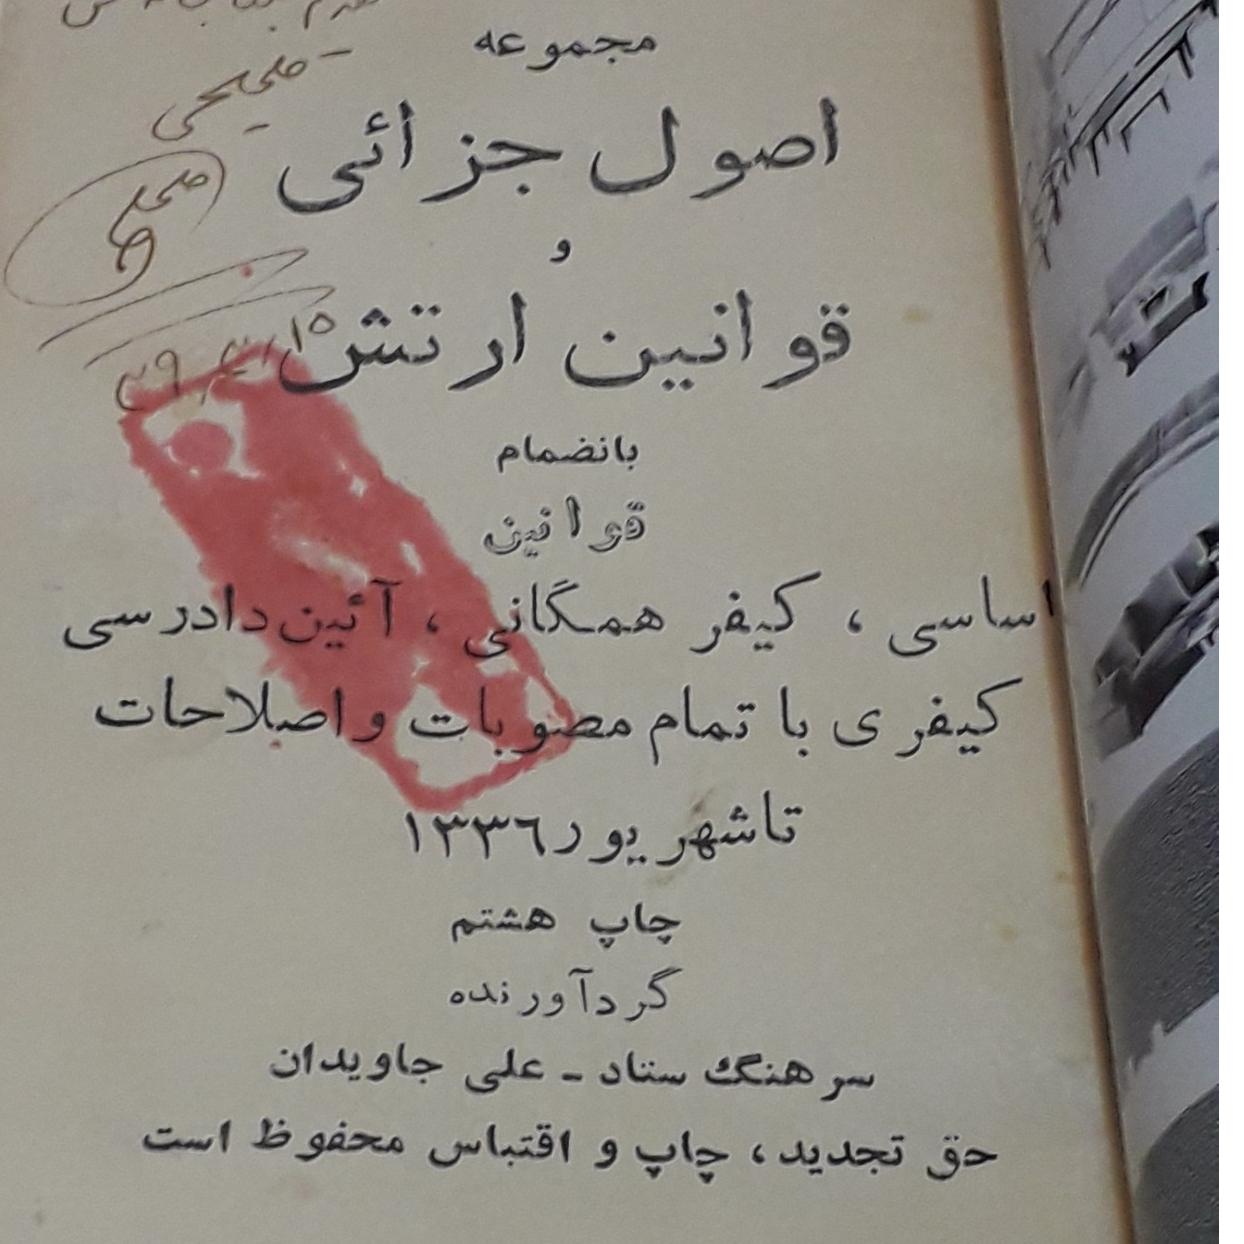 مجموعه
اصول جزائی
و
قوانین ارتش
بانضمام
قوانین
اساسی ، کیفر همگانی ، آئین دادرسی
کیفری با تمام مصوبات و اصلاحات
تاشهریور ۱۳۳۶
چاپ هشتم
گردآورنده
سرهنگ ستاد - علی جاویدان
حق تجدید، چاپ و اقتباس محفوظ است